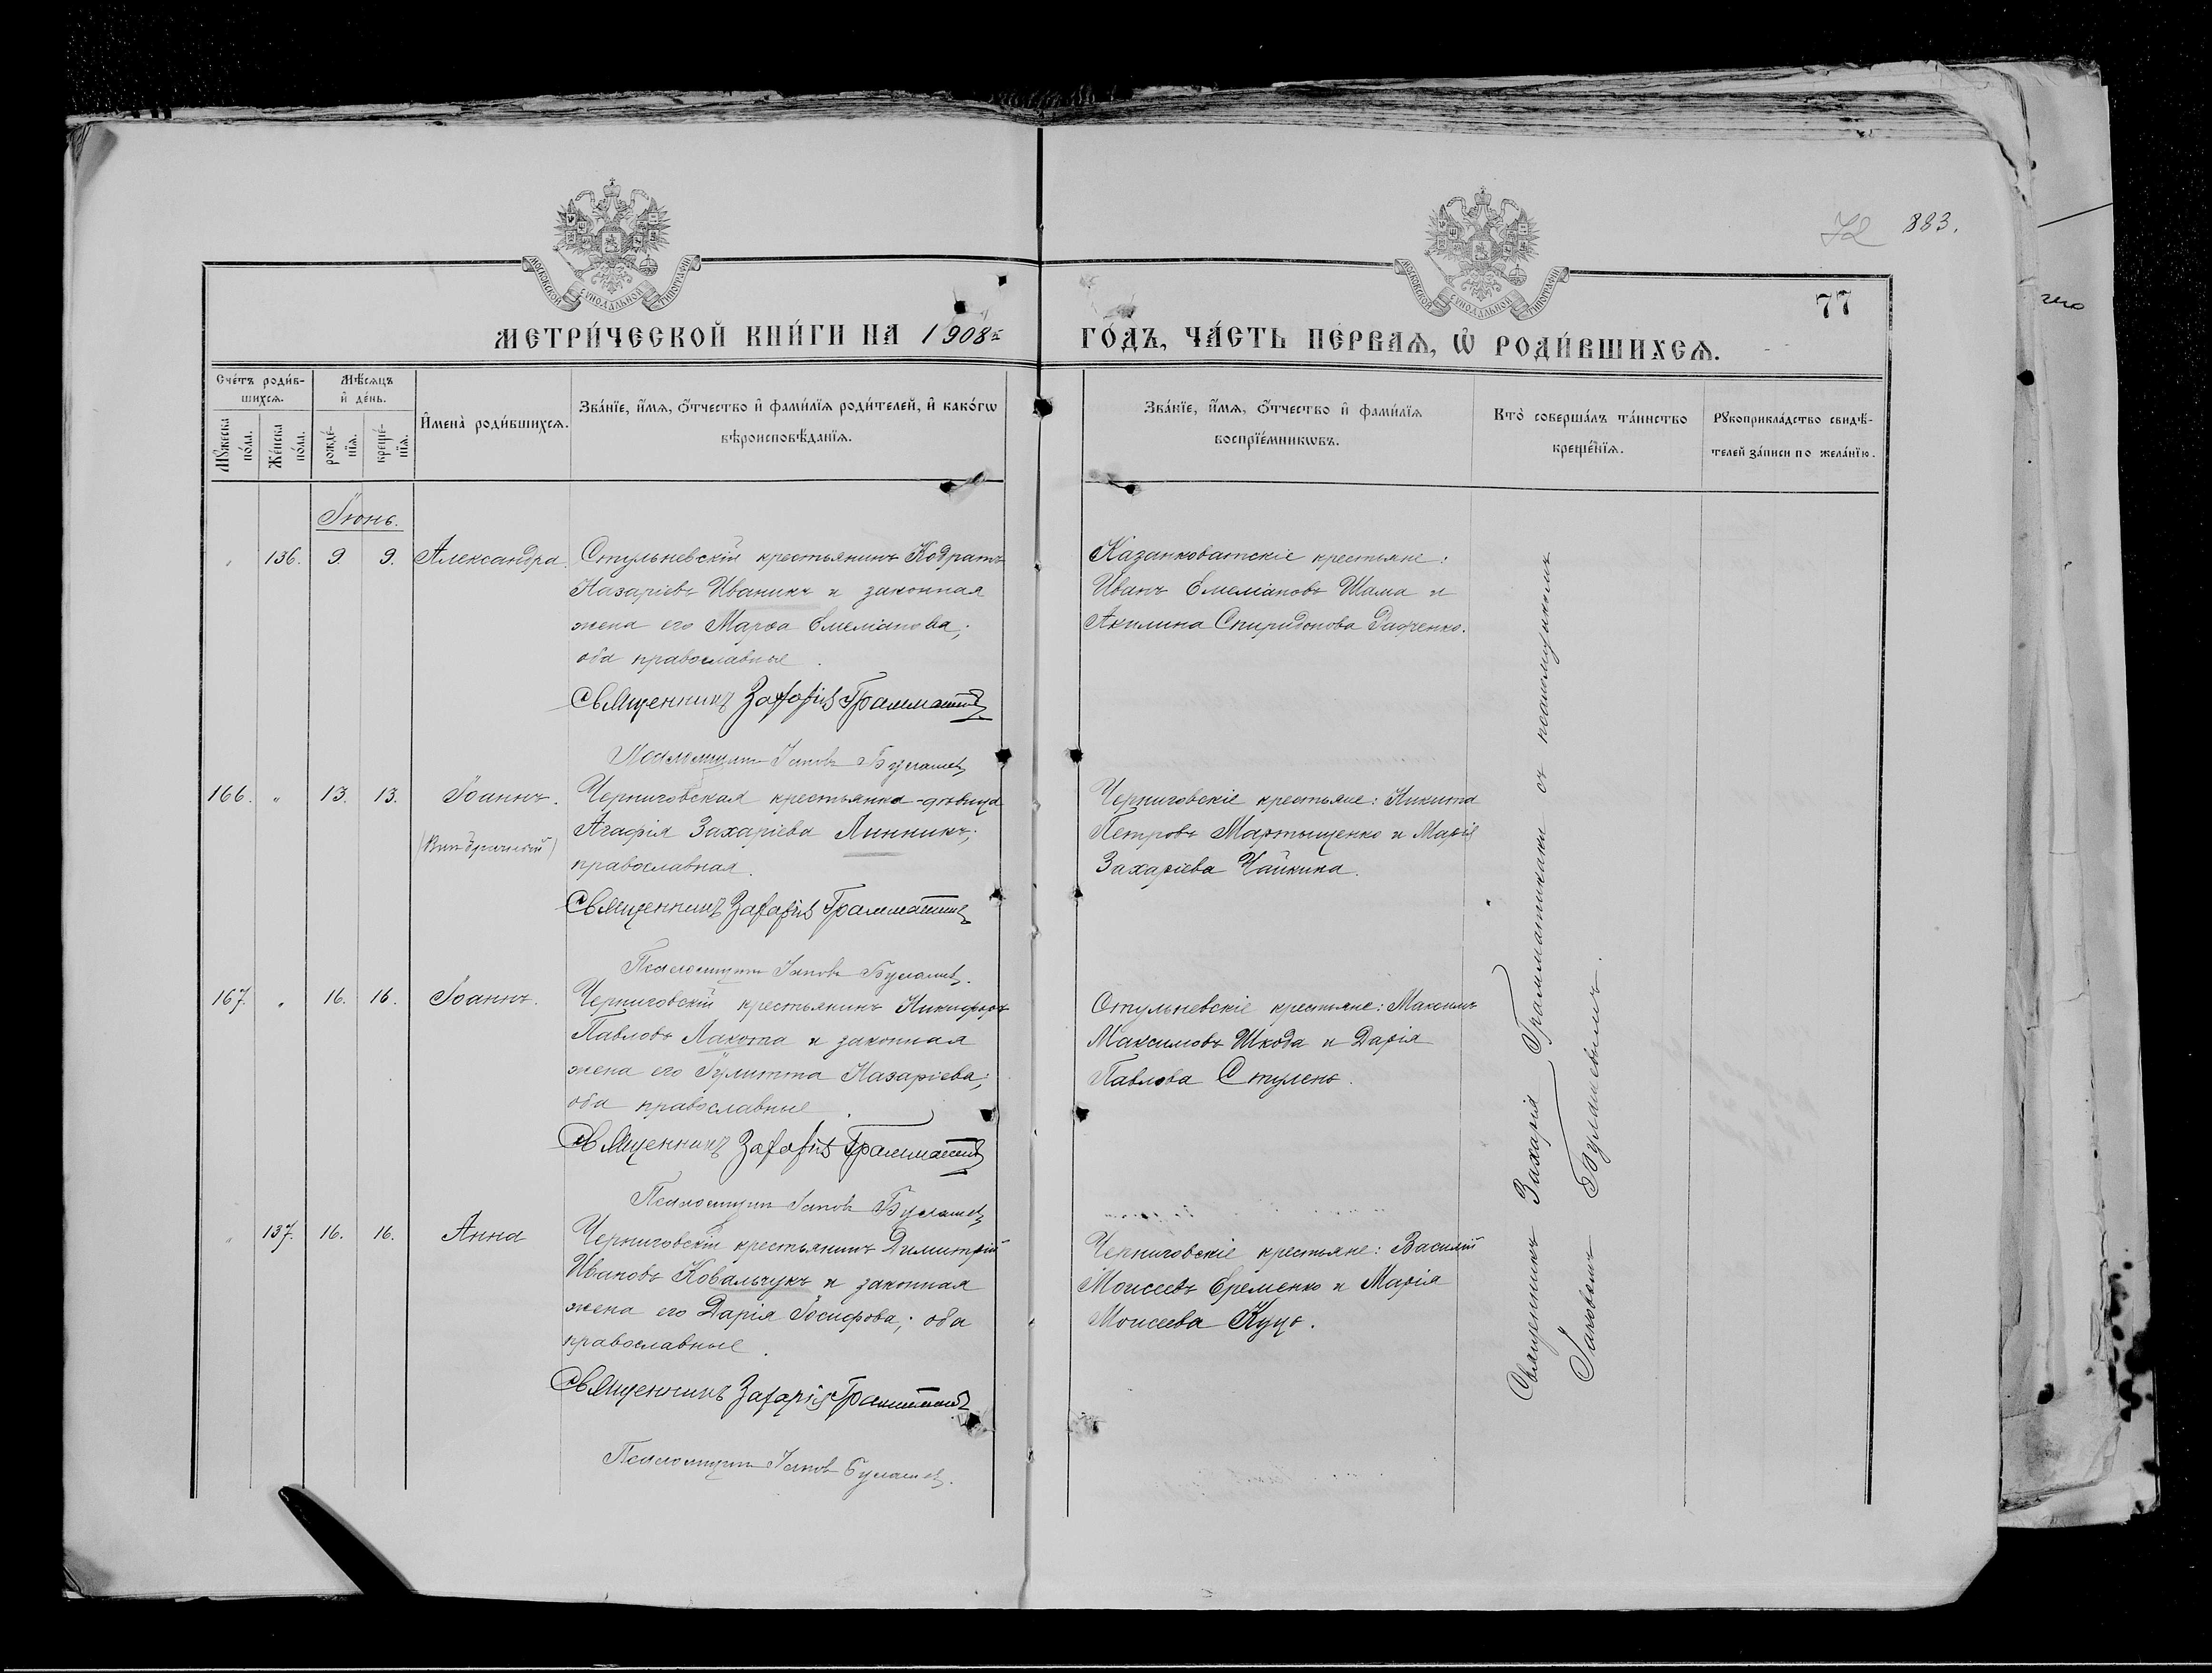 72 883.
77
МОСКОВСКОЙ СѴНОДАЛЬНОЙ ТИПОГРАФІИ
МОСКОВСКОЙ СѴНОДАЛЬНОЙ ТИПОГРАФІИ
МЕТРИ́ЧЕСКОЙ КНИ́ГИ НА 1908й ГО́ДЪ, ЧА́СТЬ ПЕ́РВАѦ, Ѡ҆ РОДИ́ВШИХСѦ.
Сче́тъ роди́в-
шихсѧ.
Мꙋ́жеска по́ла.
Же́нска по́ла.
Мѣ́сѧцъ
и҆ де́нь.
рожде́-
нїѧ.
креще́-
нїѧ.
И҆мена̀ роди́вшихсѧ.
Зва́нїе, и҆́мѧ, ѻ҆́тчество и҆ фами́лїѧ роди́телей, и҆ како́гѡ
вѣроисповѣ́данїѧ.
Зва́нїе, и҆́мѧ, ѻ҆́тчество и҆ фами́лїѧ
воспрїе́мникѡвъ.
Кто̀ соверша́лъ та́инство
креще́нїѧ.
Рꙋкоприкла́дство свидѣ́-
телей за́писи по жела́нїю.
Іюнь.
" 136. 9. 9. Александра.
Стульневскій крестьянинъ Кодратъ
Назаріевъ Иваникъ и законная
жена его Марѳа Емеліанова;
оба православные.
Священникъ Захарія Грамматинъ
Псаломщикъ Іаковъ Булашев
Казанковатскіе крестьяне:
Иванъ Емеліановъ Шама и
Акилина Спиридонова Радченко.
166. " 13. 13. Іоаннъ.
(Внѣбрачный)
Черниговская крестьянка-дѣвица
Агафія Захаріева Линникъ;
православная.
Священникъ Захарія Грамматинъ
Псаломщикъ Іаковъ Булашев.
Черниговскіе крестьяне: Никита
Петровъ Мартыщенко и Марія
Захаріева Чайкина.
167. " 16. 16. Іоаннъ.
Черниговскій крестьянинъ Никифоръ
Павловъ Лакота и законная
жена его Іулитта Назаріева;
оба православные.
Священникъ Захарія Грамматинъ
Псаломщикъ Іаковъ Булашев
Стульневскіе крестьяне: Максимъ
Максимовъ Шкода и Дарія
Павлова Ступень.
" 137. 16. 16. Анна
Черниговскій крестьянинъ Димитрій
Ивановъ Ковальчукъ и законная
жена его Дарія Іосифова; оба
православные.
Священникъ Захарія Грамматинъ
Псаломщикъ Іаковъ Булашев.
Черниговскіе крестьяне: Василій
Моисеевъ Еременко и Марія
Моисеева Куцъ.
Священникъ Захарія съ псаломщикомъ
Іаковомъ Булашевымъ.